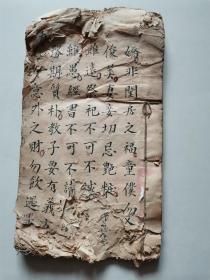 嬌非閨房之福童僕勿
俊美妻妾切忌艷粧
雖遠祭祀不可不誠
雖愚經書不可不讀
務期質朴教子要有義
意外之財勿飲過